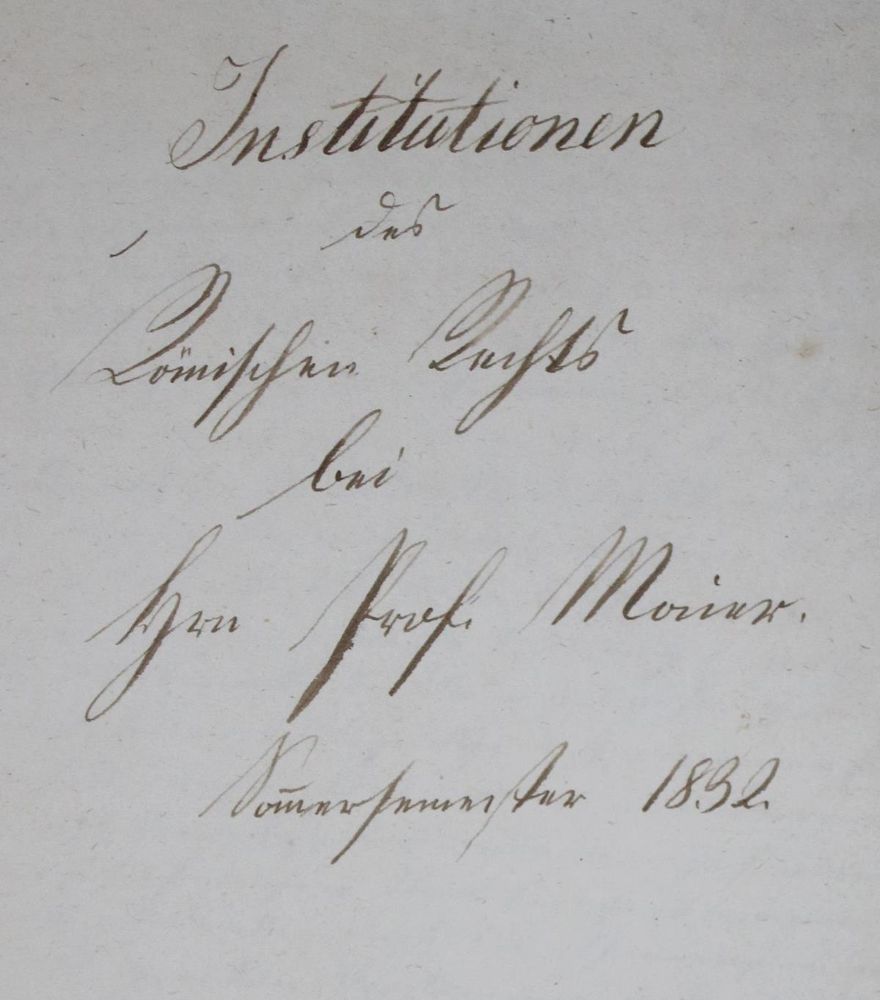 Institutionen
des
Römischen Rechts
bei
Hrn Prof. Maier.
Som̅ersemester 1832.